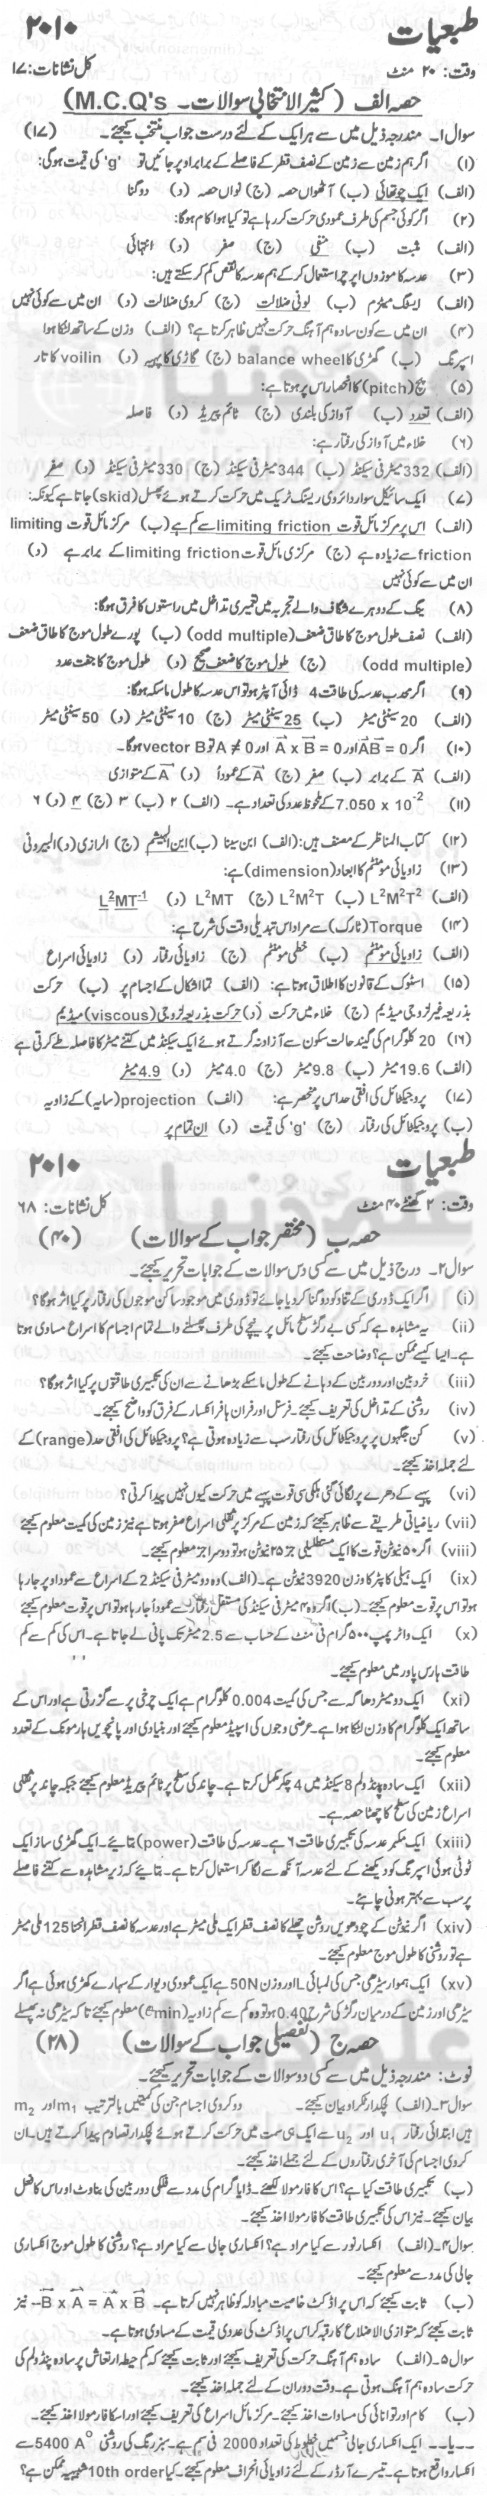 طبعیات ۲۰۱۰
وقت: ۲۰ منٹ کل نشانات: ۱۷
حصہ الف (کثیر الانتخابی سوالات۔ M.C.Q's)
سوال ۱۔ مندرجہ ذیل میں سے ہر ایک کے لئے درست جواب منتخب کیجئے۔ (۱۷)
(۱) اگر ہم زمین سے زمین کے نصف قطر کے فاصلے کے برابر اوپر جائیں تو 'g' کی قیمت ہوگی:
(الف) ایک چوتھائی (ب) آٹھواں حصہ (ج) نواں حصہ (د) دوگنا
(۲) اگر کوئی جسم کی طرف عمودی حرکت کر رہا ہے تو کیا ہوا کام ہوگا:
(الف) مثبت (ب) منفی (ج) صفر (د) انتہائی
(۳) عدسہ کا موزوں اپرچر استعمال کر کے ہم عدسہ کا نقص کم کر سکتے ہیں:
(الف) اسٹگ میٹزم (ب) لونی ضلالت (ج) کروی ضلالت (د) ان میں سے کوئی نہیں
(۴) ان میں سے کون سادہ ہم آہنگ حرکت نہیں ظاہر کرتا ہے؟ (الف) وزن کے ساتھ لٹکا ہوا
اسپرنگ (ب) گھڑی کا balance wheel (ج) گاڑی کا پہیہ (د) voilin کا تار
(۵) پچ (pitch) کا انحصار اس پر ہوتا ہے:
(الف) تعدد (ب) آواز کی بلندی (ج) ٹائم پیریڈ (د) فاصلہ
(۶) خلاء میں آواز کی رفتار ہے:
(الف) 332 میٹر فی سیکنڈ (ب) 344 میٹر فی سیکنڈ (ج) 330 میٹر فی سیکنڈ (د) صفر
(۷) ایک سائیکل سوار دائروی ریسنگ ٹریک میں حرکت کرتے ہوئے پھسل (skid) جاتا ہے کیونکہ:
(الف) اس پر مرکز مائل قوت limiting friction سے کم ہے (ب) مرکز مائل قوت limiting
friction سے زیادہ ہے (ج) مرکزی مائل قوت limiting friction کے برابر ہے (د)
ان میں سے کوئی نہیں
(۸) ینگ کے دوہرے شگاف والے تجربہ میں تعمیری تداخل میں راستوں کا فرق ہوگا:
(الف) نصف طول موج کا طاق ضعف (odd multiple) (ب) پورے طول موج کا طاق ضعف
(odd multiple) (ج) طول موج کا ضعف صحیح (د) طول موج کا جفت عدد
(۹) اگر محدب عدسہ کی طاقت 4 ڈائی آپٹر ہو تو اس عدسہ کا طول ماسکہ ہوگا:
(الف) 20 سینٹی میٹر (ب) 25 سینٹی میٹر (ج) 10 سینٹی میٹر (د) 50 سینٹی میٹر
(۱۰) اگر AB = 0 اور A x B = 0 اور A ≠ 0 تو vector B ہوگا۔
(الف) A کے برابر (ب) صفر (ج) A کے عموداً (د) A کے متوازی
(۱۱) 7.050 x 10⁻² کے ملحوظ عدد کی تعداد ہے۔ (الف) ۲ (ب) ۳ (ج) ۴ (د) ۶
(۱۲) کتاب المناظر کے مصنف ہیں: (الف) ابن سینا (ب) ابن الہیشم (ج) الرازی (د) البیرونی
(۱۳) زاویائی مومنٹم کا ابعاد (dimension) ہے:
(الف) L²M²T² (ب) L²M²T (ج) L²MT (د) L²MT⁻¹
(۱۴) Torque (ٹارک) سے مراد اس تبدیلی وقت کی شرح ہے:
(الف) زاویائی مومنٹم (ب) خطی مومنٹم (ج) زاویائی رفتار (د) زاویائی اسراع
(۱۵) اسٹوک کے قانون کا اطلاق ہوتا ہے: (الف) تمام اشکال کے اجسام پر (ب) حرکت
بذریعہ غیر لزوجی میڈیم (ج) خلاء میں حرکت (د) حرکت بذریعہ لزوجی (viscous) میڈیم
(۱۶) 20 کلوگرام کی گیند حالت سکون سے آزادانہ گرتے ہوئے ایک سیکنڈ میں کتنے میٹر کا فاصلہ طے کرتی ہے
(الف) 19.6 میٹر (ب) 9.8 میٹر (ج) 4.0 میٹر (د) 4.9 میٹر
(۱۷) پروجیکٹائل کی افقی حد اس پر منحصر ہے: (الف) projection (سایہ) کے زاویہ
(ب) پروجیکٹائل کی رفتار (ج) 'g' کی قیمت (د) ان تمام پر
طبعیات ۲۰۱۰
وقت: ۲ گھنٹے ۴۰ منٹ کل نشانات: ۶۸
حصہ ب (مختصر جواب کے سوالات) (۴۰)
سوال ۲۔ درج ذیل میں سے کسی دس سوالات کے جوابات تحریر کیجئے۔
(i) اگر ایک ڈوری کے تناؤ کو دوگنا کر دیا جائے تو ڈوری میں موجود ساکن موجوں کی رفتار پر کیا اثر ہوگا؟
(ii) یہ مشاہدہ ہے کہ کسی بے رگڑ سطح مائل پر نیچے کی طرف پھسلنے والے تمام اجسام کا اسراع مساوی ہوتا
ہے۔ ایسا کیسے ممکن ہے؟ وضاحت کیجئے۔
(iii) خردبین اور دوربین کے دہانے کے طول ماسکے بڑھانے سے ان کی تکبیری طاقتوں پر کیا اثر ہوگا؟
(iv) روشنی کے تداخل کی تعریف کیجئے۔ فرسنل اور فران ہافر انکسار کے فرق کو واضح کیجئے۔
(v) کن جگہوں پر پروجیکٹائل کی رفتار سب سے زیادہ ہوتی ہے؟ پروجیکٹائل کی افقی حد (range) کے
لئے جملہ اخذ کیجئے۔
(vi) پہیے کے دھرے پر لگائی گئی ہلکی سی قوت پہیے میں حرکت کیوں نہیں پیدا کرتی؟
(vii) ریاضیاتی طریقے سے ظاہر کیجئے کہ زمین کے مرکز پر ثقلی اسراع صفر ہوتا ہے نیز زمین کی کمیت معلوم کیجئے
(viii) اگر ۵۰ نیوٹن قوت کا ایک مستطیلی جز ۲۵ نیوٹن ہو تو دوسرا جز معلوم کیجئے۔
(ix) ایک ہیلی کاپٹر کا وزن 3920 نیوٹن ہے۔ (الف) وہ دو میٹر فی سیکنڈ 2 کے اسراع سے عموداً اوپر جا رہا
ہو تو اس پر قوت معلوم کیجئے۔ (ب) اگر وہ ۴ میٹر فی سیکنڈ کی مستقل رفتار سے عموداً جا رہا ہو تو اس پر قوت معلوم کیجئے۔
(x) ایک واٹر پمپ ۵۰۰ گرام فی منٹ کے حساب سے 2.5 میٹر تک پانی لے جاتا ہے۔ اس کی کم سے کم
طاقت ہارس پاور میں معلوم کیجئے۔
(xi) ایک دو میٹر دھاگہ سے جس کی کمیت 0.004 کلوگرام ہے ایک چرخی پر سے گزرتی ہے اور اس کے
ساتھ ایک کلوگرام کا وزن لٹکا ہوا ہے۔ عرضی موجوں کی اسپیڈ معلوم کیجئے اور بنیادی اور پانچویں ہارمونک کے تعدد
معلوم کیجئے۔
(xii) ایک سادہ پنڈولم 8 سیکنڈ میں 4 چکر مکمل کرتا ہے۔ چاند کی سطح پر ٹائم پیریڈ معلوم کیجئے جبکہ چاند پر ثقلی
اسراع زمین کی سطح کا چھٹا حصہ ہے۔
(xiii) ایک مکبر عدسہ کی تکبیری طاقت ۶ ہے۔ عدسہ کی طاقت (power) بتائیے۔ ایک گھڑی ساز ایک
ٹوٹی ہوئی اسپرنگ کو دیکھنے کے لئے عدسہ آنکھ سے لگا کر استعمال کرتا ہے۔ بتائیے کہ زیر مشاہدہ سے کتنے فاصلے
پر سب سے بہتر ہونی چاہیے۔
(xiv) اگر نیوٹن کے چودھویں روشن چھلے کا نصف قطر ایک ملی میٹر ہے اور عدسہ کا نصف قطر انحنا 125 ملی میٹر
ہے تو روشنی کا طول موج معلوم کیجئے۔
(xv) ایک ہموار سیڑھی جس کی لمبائی L اور وزن 50N ہے ایک عمودی دیوار کے سہارے کھڑی ہوئی ہے اگر
سیڑھی اور زمین کے درمیان رگڑ کی شرح 0.40 ہو تو وہ کم سے کم زاویہ (θmin) معلوم کیجئے تاکہ سیڑھی نہ پھسلے
حصہ ج (تفصیلی جواب کے سوالات) (۲۸)
نوٹ: مندرجہ ذیل میں سے کسی دو سوالات کے جوابات تحریر کیجئے۔
سوال ۳۔ (الف) لچکدار ٹکراؤ بیان کیجئے۔ دو کروی اجسام جن کی کمیتیں بالترتیب m₁ اور m₂
ہیں ابتدائی رفتار u₁ اور u₂ سے ایک ہی سمت میں حرکت کرتے ہوئے لچکدار تصادم پیدا کرتے ہیں۔ ان
کروی اجسام کی آخری رفتاروں کے لئے جملے اخذ کیجئے۔
(ب) تکبیری طاقت کیا ہے؟ اس کا فارمولا لکھئے۔ ڈایاگرام کی مدد سے فلکی دوربین کی بناوٹ اور اس کا فعل
بیان کیجئے۔ نیز اس کی تکبیری طاقت کا فارمولا اخذ کیجئے۔
سوال ۴۔ (الف) انکسار نور سے کیا مراد ہے؟ انکساری جالی سے کیا مراد ہے؟ روشنی کا طول موج انکساری
جالی کی مدد سے معلوم کیجئے۔
(ب) ثابت کیجئے کہ اس پراڈکٹ خاصیت مبادلہ کو ظاہر نہیں کرتا ہے۔ A x B = A x B-- نیز
ثابت کیجئے کہ متوازی الاضلاع کا رقبہ کراس پراڈکٹ کی عددی قیمت کے مساوی ہوتا ہے۔
سوال ۵۔ (الف) سادہ ہم آہنگ حرکت کی تعریف کیجئے اور ثابت کیجئے کہ کم حیطہ ارتعاش پر سادہ پنڈولم کی
حرکت سادہ ہم آہنگ ہوتی ہے۔ وقت دوران کے لئے جملہ اخذ کیجئے۔
(ب) کام اور توانائی کی مساوات اخذ کیجئے۔ مرکز مائل اسراع کی تعریف کیجئے اور اس کا فارمولا اخذ کیجئے۔
--- یا --- ایک انکساری جالی جسمیں خطوط کی تعداد 2000 فی سم ہے۔ سبز رنگ کی روشنی 5400 A° سے
انکسار واقع ہوتا ہے۔ تیسرے آرڈر کے لئے زاویائی انحراف معلوم کیجئے۔ کیا 10th order شبیہہ ممکن ہے؟